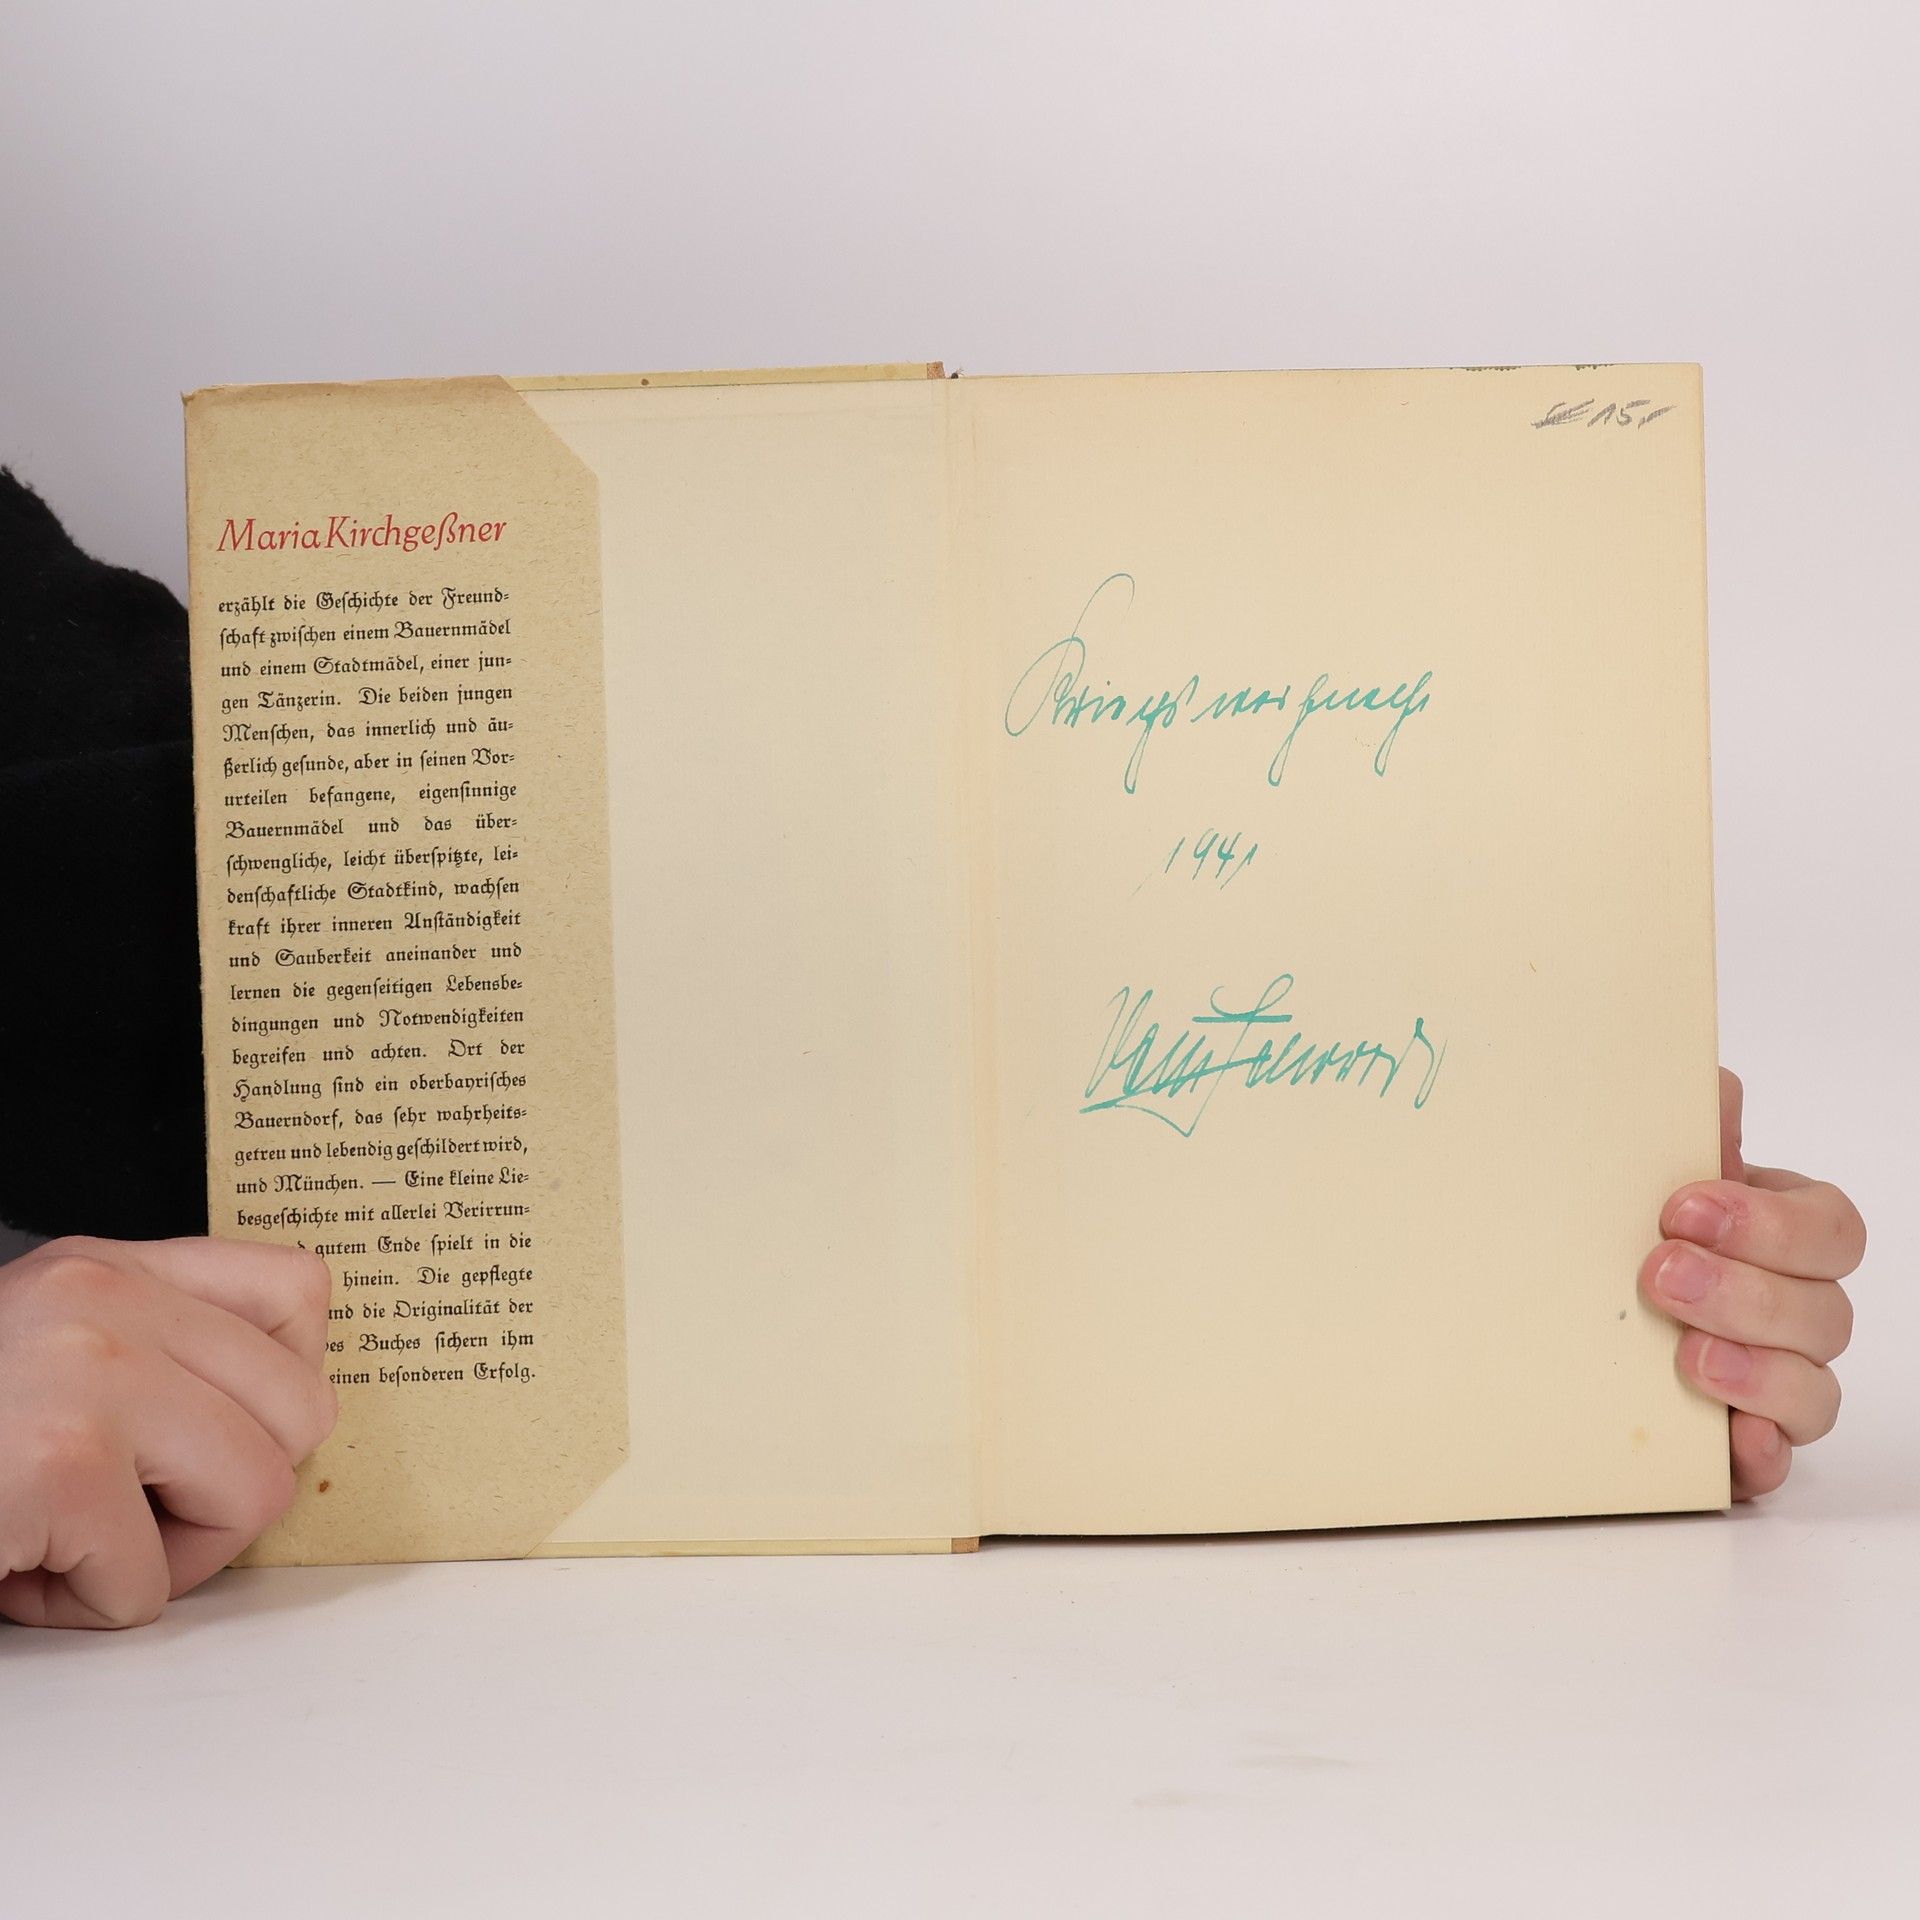 Maria Kirchgeßner
erzählt die Geschichte der Freund-
schaft zwischen einem Bauernmädel
und einem Stadtmädel, einer jun-
gen Tänzerin. Die beiden jungen
Menschen, das innerlich und äu-
ßerlich gesunde, aber in seinen Vor-
urteilen befangene, eigensinnige
Bauernmädel und das über-
schwengliche, leicht überspitzte, lei-
denschaftliche Stadtkind, wachsen
kraft ihrer inneren Anständigkeit
und Sauberkeit aneinander und
lernen die gegenseitigen Lebensbe-
dingungen und Notwendigkeiten
begreifen und achten. Ort der
Handlung sind ein oberbayrisches
Bauerndorf, das sehr wahrheits-
getreu und lebendig geschildert wird,
und München. — Eine kleine Lie-
besgeschichte mit allerlei Verirrun-
gutem Ende spielt in die
hinein. Die gepflegte
und die Originalität der
Buches sichern ihm
einen besonderen Erfolg.
15,-
Kriegsweihnacht
1941